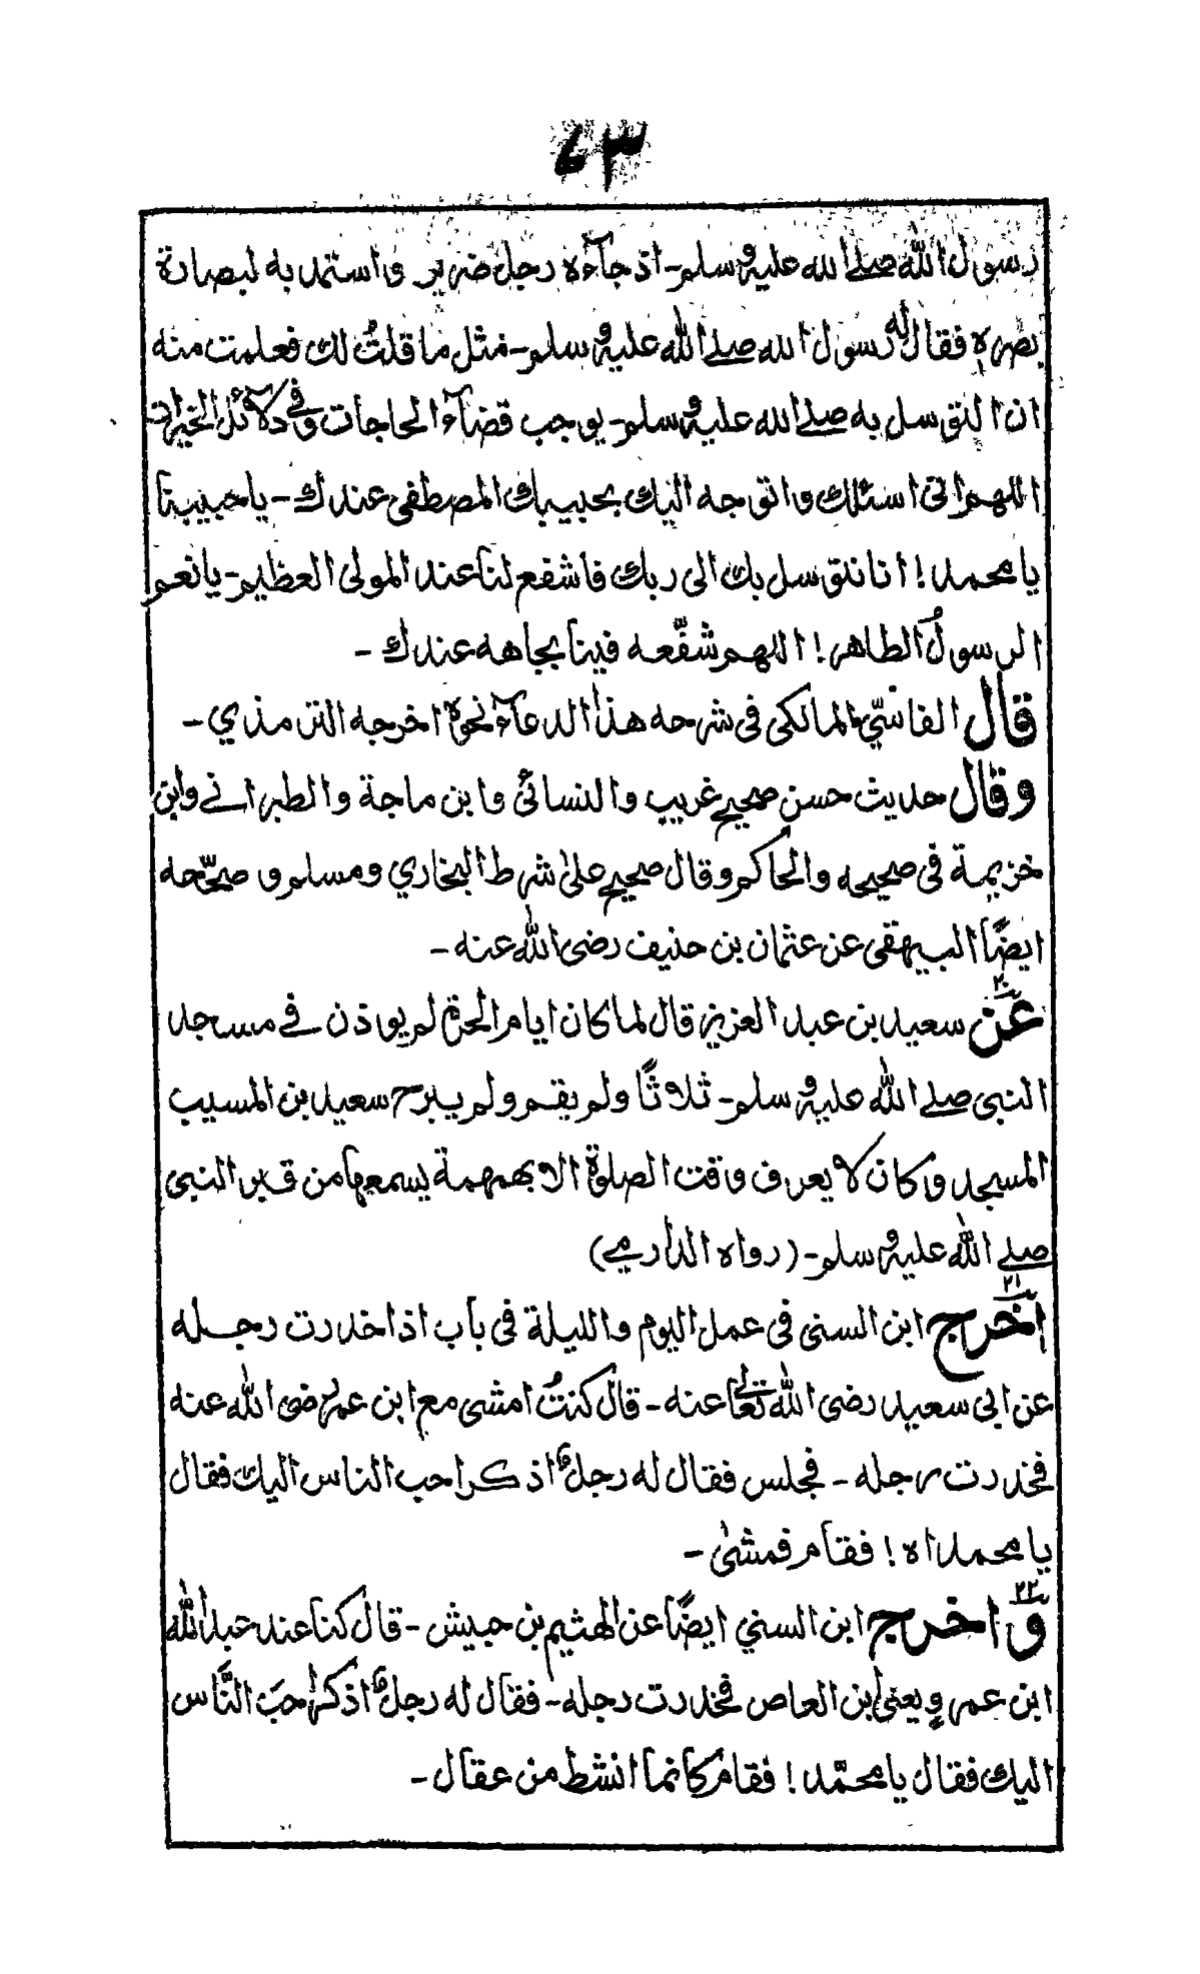 ٦٣
رسول الله صلے الله علیہ وسلم۔ اذ جآءه رجل ضریر واستمد به لبصارة
بصره فقال له رسول الله صلے الله علیہ وسلم۔ مثل ما قلتُ لك فعلمت منه
ان التوسل به صلے الله علیہ وسلم۔ یوجب قضآء الحاجات وفی دلآئل الخیرات
اللهم انی اسئلك واتوجه الیك بحبیبك المصطفی عندك۔ یا حبیبنا
یا محمد! انا نتوسل بك الی ربك فاشفع لنا عند المولی العظیم۔ یا نعم
الرسولُ الطاهر! اللهم شفّعه فینا بجاهه عندك۔
قال الفاسّی المالکی فی شرحه هذا الدعآء نحوه اخرجه الترمذي۔
وقال حدیث حسن صحیح غریب والنسائی وابن ماجة والطبرانے وابن
خزیمة فی صحیحه والحاکم وقال صحیح علیٰ شرط البخاري ومسلم و صحّحه
ایضًا البیهقی عن عثمان بن حنیف رضی الله عنه۔
٢٠
عن سعید بن عبد العزیز قال لما کان ایام الحرة لم یوذن فے مسجد
النبی صلے الله علیہ وسلم۔ ثلاثًا ولم یقم ولم یبرح سعید بن المسیب
المسجد وکان لا یعرف وقت الصلوة الا بهمهمة یسمعها من قبر النبی
صلے الله علیہ وسلم۔ (رواه الدارمے)
٢١
اخرج ابن السنی فی عمل الیوم واللیلة فی باب اذا خدرت رجله
عن ابی سعید رضی الله تعالیٰ عنه۔ قال کنتُ امشی مع ابن عمر رضی الله عنه
فخدرت رجله۔ فجلس فقال له رجلٌ اذکر احب الناس الیك فقال
یا محمداه! فقام فمشیٰ۔
٢٢
و اخرج ابن السني ایضًا عن الهثیم بن حبیش۔ قال کنا عند عبد الله
ابن عمرو یعنی ابن العاص فخدرت رجله۔ فقال له رجلٌ اذکر احبَ النَّاس
الیك فقال یا محمّد! فقام کانما انشط من عقال۔